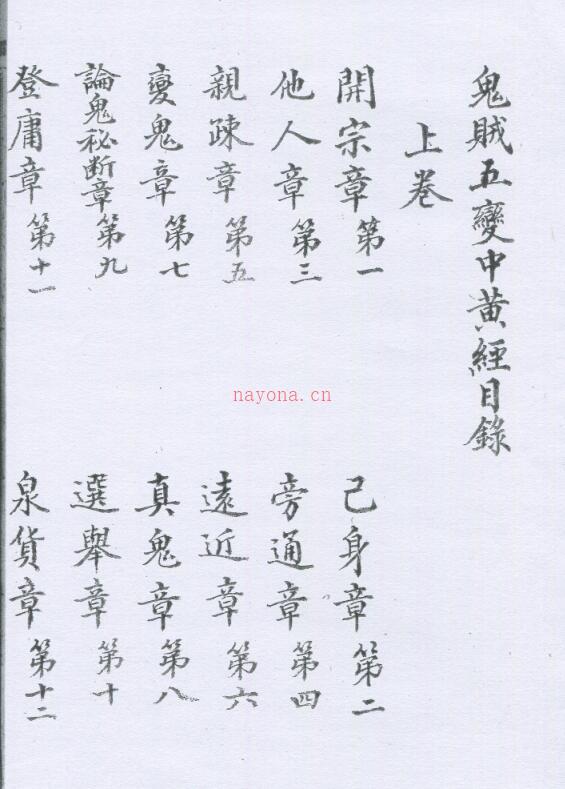 鬼賊五變中黃經目錄
上卷
開宗章第一
己身章第二
他人章第三
旁通章第四
親疎章第五
遠近章第六
變鬼章第七
真鬼章第八
論鬼秘断章第九
選舉章第十
登庸章第十一
泉貨章第十二
nayona.cn